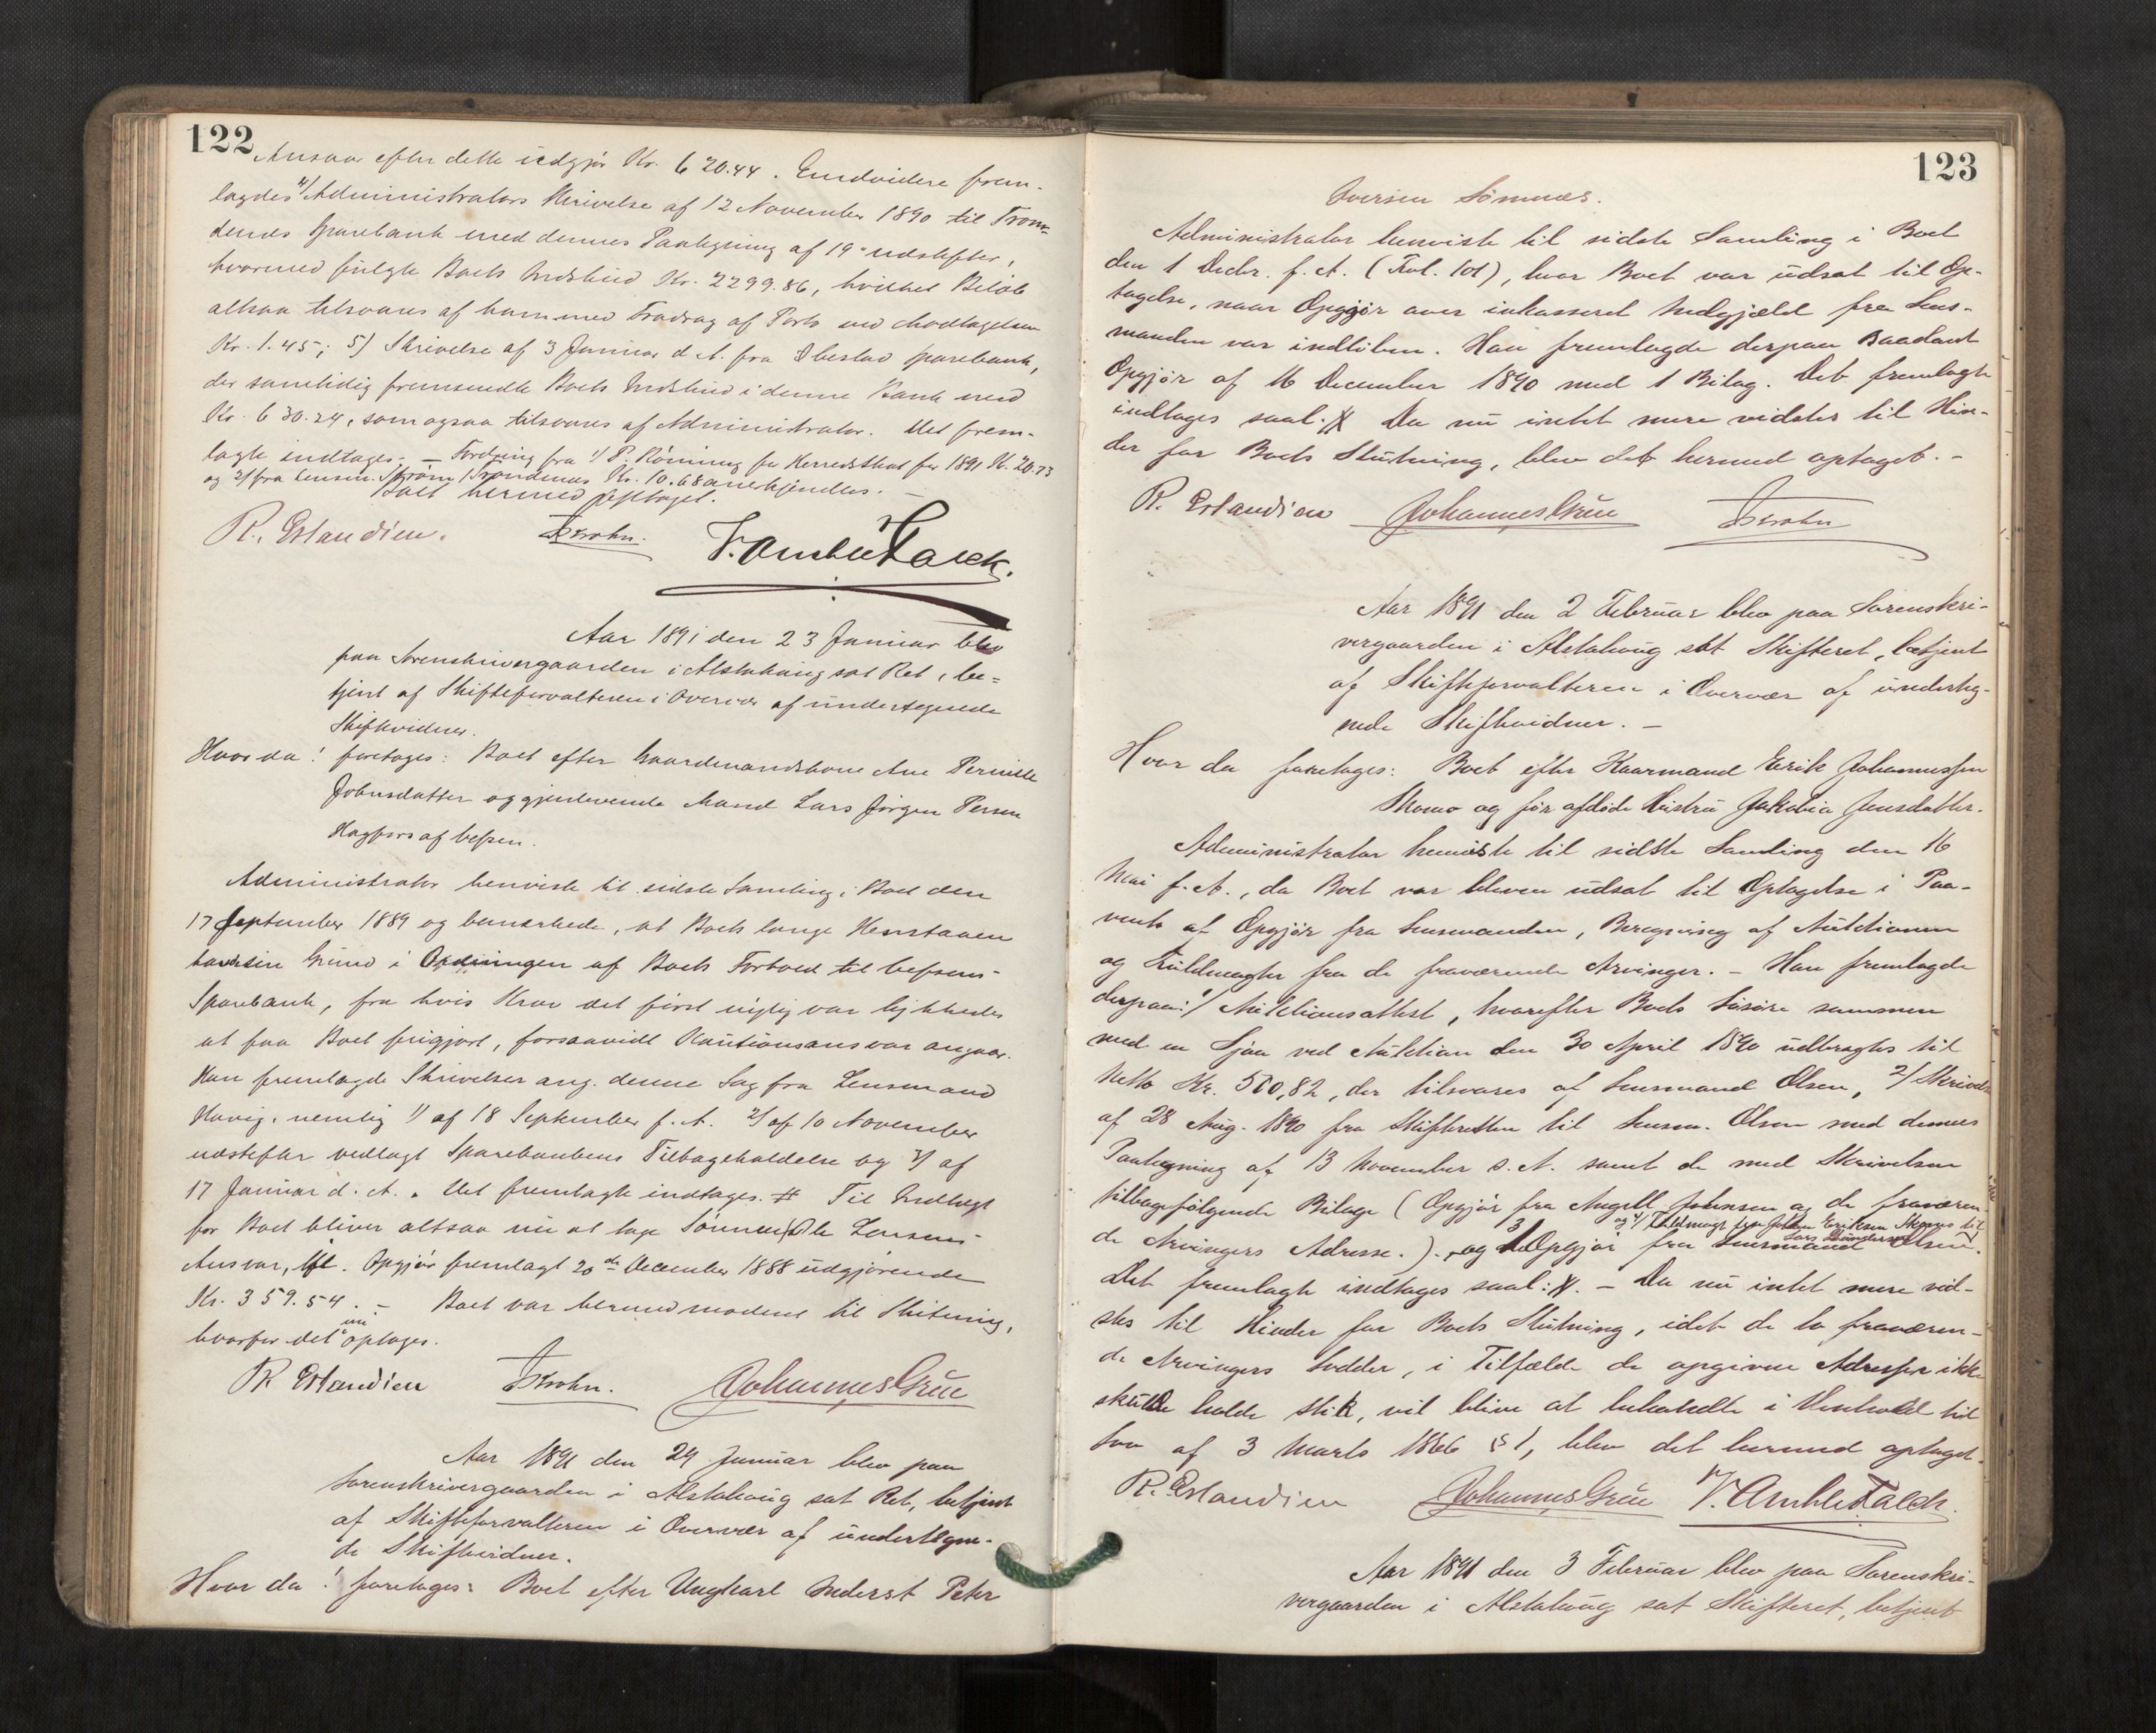 122
Ansvar efter dette udgjør Kr. 620.44. Endvidere frem-
lagdes 4/ Administrators Skrivelse af 12 November 1890 til Tron-
denes Sparebank med dennes Paategning af 19 næstefter,
hvormed fulgte Boets Indskud Kr. 2299.86, hvilket Beløb
altsaa tilsvares af ham med Fradrag af Porto ved Modtagelsen
Kr. 1.45; 5) Skrivelse af 3 Januar d. A. fra Ibestad Sparebank,
der samtidig fremsendte Boets Indskud i denne Bank med
Kr. 630.24, som ogsaa tilsvares af Administrator. Det frem-
lagte indtages. — Fordring fra 1/ P. Rønning for Herredskat for 1891 Kr. 20.73
og 2/ fra Lensm. Strøm i Trondenes Kr. 10.68 anerkjendtes. —
Boet hermed optaget.
R. Erlandsen. Krohn. J. Amble Falck.
Aar 1891 den 23 Januar blev
paa Sorenskrivergaarden i Alstahaug sat Ret, be-
tjent af Skifteforvalteren i Overvær af undertegnede
Skiftevidner.
Hvor da! foretages: Boet efter Gaardmandskone Ane Pernille
Johnsdatter og gjenlevende Mand Lars Jørgen Persen
Hagfors af Vefsen.
Administrator henviste til sidste Samling i Boet den
17 September 1889 og bemærkede, at Boets lange Henstaaen
havde sin Grund i Ordningen af Boets Forhold til Vefsens
Sparebank, fra hvis Krav det først nylig var lykkedes
at faa Boet frigjort, forsaavidt Kautionsansvar angaar.
Han fremlagde Skrivelser ang. denne Sag fra Lensmand
Havig, nemlig 1) af 18 September f. A. 2) af 10 November
næstefter vedlagt Sparebankens Tilbageholdelse og 3) af
17 Januar d. A. Det fremlagte indtages. # Til Indtægt
for Boet bliver altsaa nu at tage Lensm.
Ansvar, ifl. Opgjør fremlagt 20de December 1888 udgjørende
Kr. 359.54. — Boet var hermed modent til Slutning,
hvorfor det nu optoges.
R. Erlandsen Krohn. Johannes Grue
Aar 1891 den 24 Januar blev paa
Sorenskrivergaarden i Alstahaug sat Ret, betjent
af Skifteforvalteren i Overvær af undertegne-
de Skiftevidner.
Hvor da! foretages: Boet efter Ungkarl Inderst Peter
123
Iversen Sømnes.
Administrator henviste til sidste Samling i Boet
den 1 Decbr. f. A. (Fol. 101), hvor Boet var udsat til Op-
tagelse, naar Opgjør over inkasseret Indgjæld fra Lens-
manden var indløben. Han fremlagde derpaa saadant
Opgjør af 16 December 1890 med 1 Bilag. Det fremlagte
indtages saal: # Da nu intet mere vidstes til Hin-
der for Boets Slutning, blev det hermed optaget. —
R. Erlandsen Johannes Grue Krohn
Aar 1891 den 2 Februar blev paa Sorenskri-
vergaarden i Alstahaug sat Skifteret, betjent
af Skifteforvalteren i Overvær af underteg-
nede Skiftevidner. —
Hvor da foretages: Boet efter Kaarmand Erik Johannessen
Skomo og før afdøde Hustru Jakobia Jensdatter.
Administrator henviste til sidste Samling den 16
Mai f. A., da Boet var bleven udsat til Optagelse i Paa-
vente af Opgjør fra Lensmanden, Beregning af Auktionen
og Fuldmagter fra de fraværende Arvinger. — Han fremlagde
derpaa: 1/ Auktionsattest, hvorefter Boets Løsøre sammen
med en Sjaa ved Auktion den 30 April 1890 udbragtes til
Netto Kr. 500,82, der tilsvares af Lensmand Olsen, 2/ Skrivelse
af 28 Aug. 1890 fra Skifteretten til Lensm. Olsen med dennes
Paategning af 13 November s. A. samt de med Skrivelsen
tilbagefølgende Bilage (Opgjør fra Angell Johnsen og de fraværen-
og 4/ Fuldmagt fra Johan Eriksen Skomo til
Lars
de Arvingers Adresse.). og 3 Opgjør fra Lensmand Olsen.
Det fremlagte indtages saal: #. — Da nu intet mere vid-
stes til Hinder for Boets Slutning, idet de to fraværen-
de Arvingers Lodder, i Tilfælde de opgivne Adresser ikke
skulde holde Stik, vil blive at behandle i Henhold til
Lov af 3 Marts 1866 § 1, blev det hermed optaget.
R. Erlandsen Johannes Grue J. Amble Falck.
Aar 1891 den 3 Februar blev paa Sorenskri-
vergaarden i Alstahaug sat Skifteret, betjent